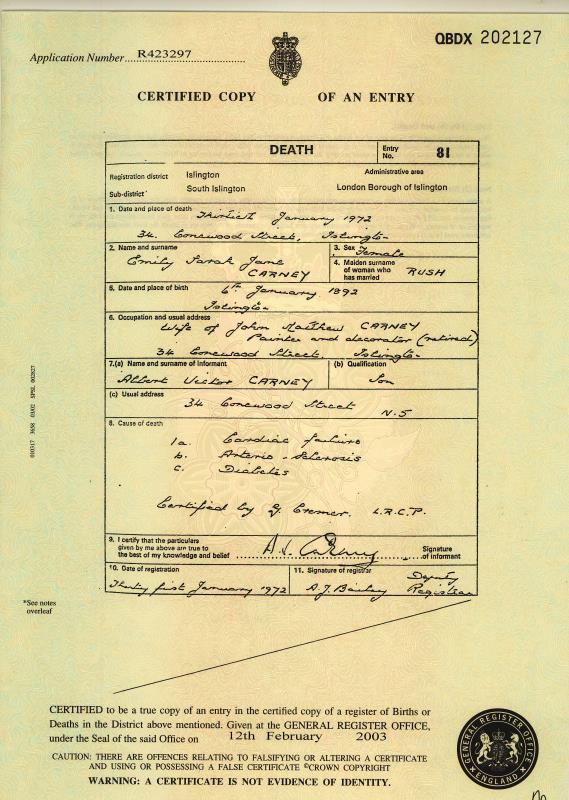 QBDX 202127
Application Number R423297
CERTIFIED COPY OF AN ENTRY
DEATH Entry No. 81
Registration district Islington Administrative area
Sub-district South Islington London Borough of Islington
1. Date and place of death Thirtieth January 1972
34 Conewood Street, Islington
2. Name and surname 3. Sex Female
Emily Sarah Jane CARNEY 4. Maiden surname of woman who has married RUSH
5. Date and place of birth 6th January 1892
Islington
6. Occupation and usual address
Wife of John Matthew CARNEY
Painter and decorator (retired)
34 Conewood Street, Islington
7.(a) Name and surname of informant (b) Qualification
Albert Victor CARNEY Son
(c) Usual address
34 Conewood Street N.5
8. Cause of death
1a. Cardiac failure
b. Arterio-Sclerosis
c. Diabetes
Certified by G. Cremer. L.R.C.P.
9. I certify that the particulars
given by me above are true to
the best of my knowledge and belief Signature of informant
10. Date of registration 11. Signature of registrar
Thirty first January 1972 A.J. Bailey Deputy Registrar
*See notes
overleaf
CERTIFIED to be a true copy of an entry in the certified copy of a register of Births or
Deaths in the District above mentioned. Given at the GENERAL REGISTER OFFICE,
under the Seal of the said Office on 12th February 2003
CAUTION: THERE ARE OFFENCES RELATING TO FALSIFYING OR ALTERING A CERTIFICATE
AND USING OR POSSESSING A FALSE CERTIFICATE ©CROWN COPYRIGHT
WARNING: A CERTIFICATE IS NOT EVIDENCE OF IDENTITY.
GENERAL REGISTER OFFICE
ENGLAND